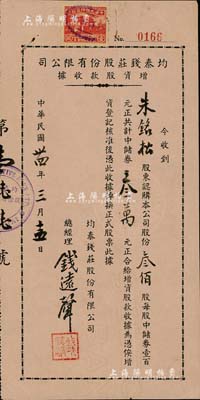 No. 0166
均泰錢莊股份有限公司
增資股款收據
今收到
朱銘格股東認購本公司股份叁佰股每股中儲券壹百
元正共計中儲券叁萬元正合給增資股款收據為憑俟增
資登記核准後憑此收據換正式股票此據
均泰錢莊股份有限公司
總經理 錢遠聲
中華民國卅四年三月五日
第 號